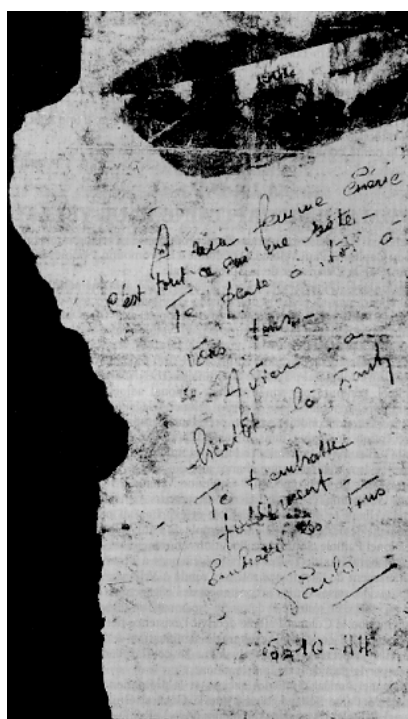 A ma femme chérie
c'est tout ce qui me reste -
Je pense à toi à
vous tous -
bientôt là
Je t'embrasse
follement -
Embrasse les tous
Paulo
10-44